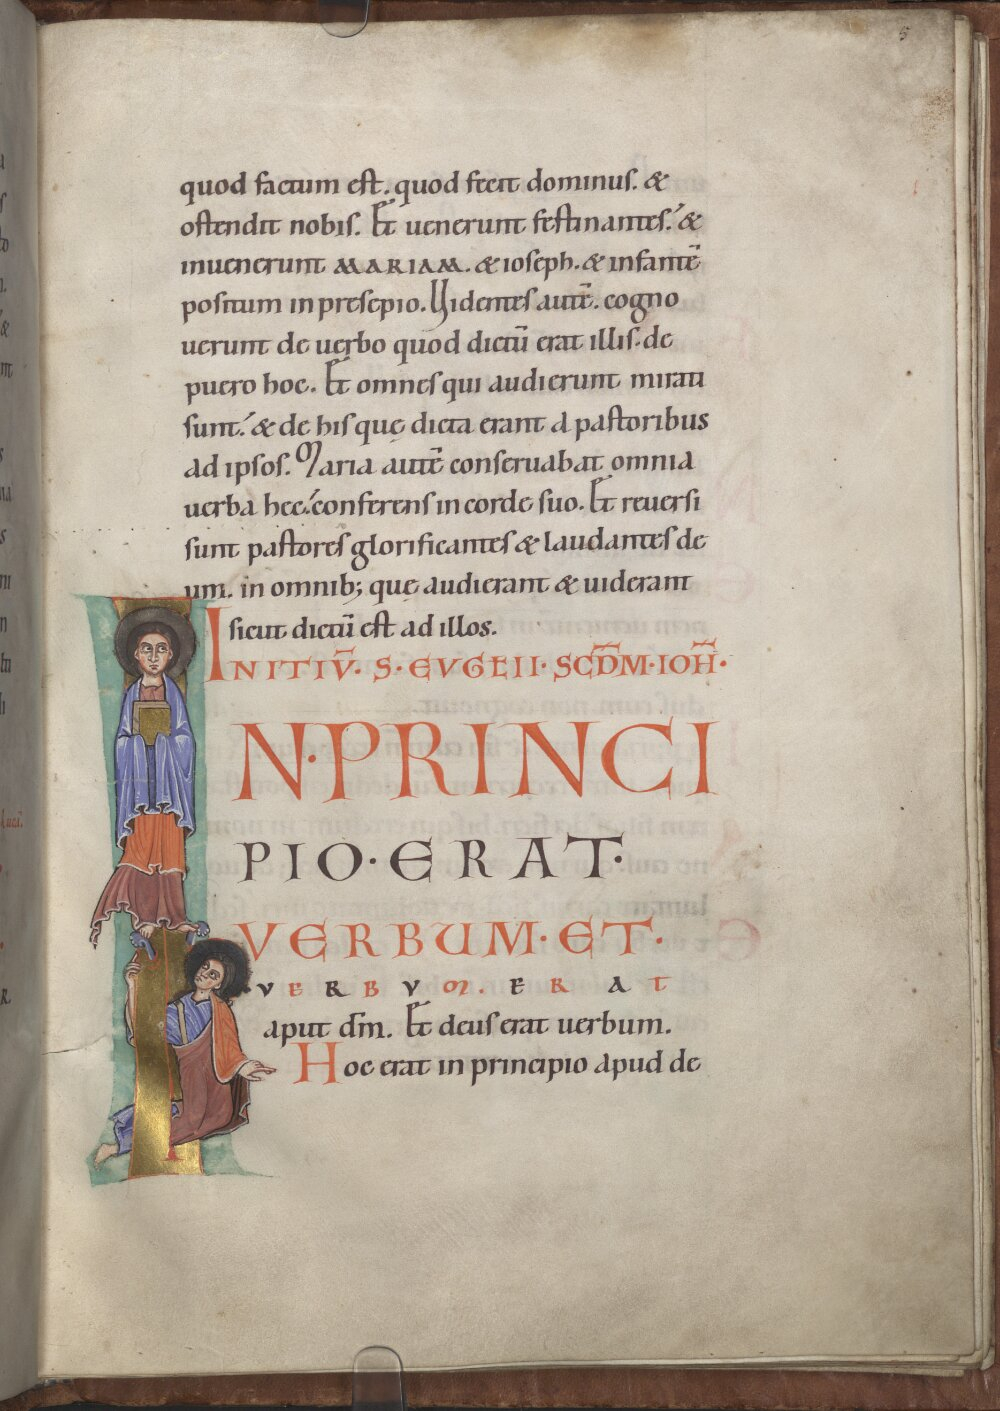 5
quod factum est. quod fecit dominus. &
ostendit nobis. Et uenerunt festinantes. &
inuenerunt MARIAM. & ioseph. & infantē
positum in presepio. Uidentes autē. cogno
uerunt de uerbo quod dictū erat illis. de
puero hoc. Et omnes qui audierunt mirati
sunt. & de his quę dicta erant a pastoribus
ad ipsos. Maria autē conseruabat omnia
uerba hęc. conferens in corde suo. Et reuersi
sunt pastores glorificantes & laudantes de
um. in omnib; quę audierant & uiderant
sicut dictū est ad illos.
INITIV̄. S. EVGELII. SCD̄M. IOH̄.
N. PRINCI
PIO. ERAT.
VERBUM. ET.
VERBVM. ERAT
aput dm̄. Et deus erat uerbum.
Hoc erat in principio apud de